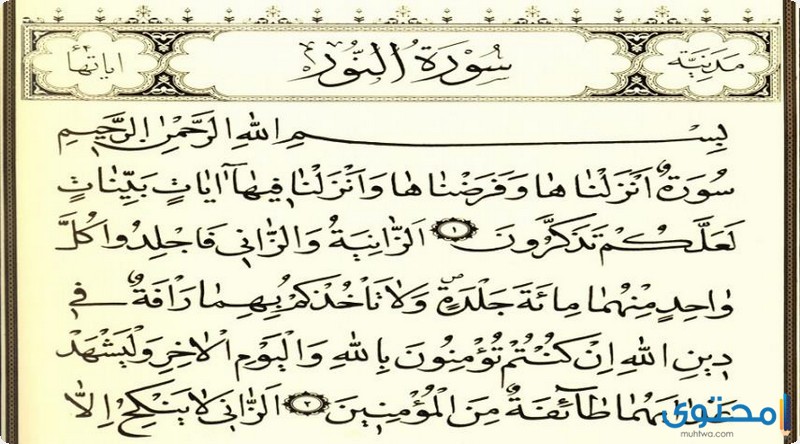 مَدَنِيَّة سُورَةُ النُّورِ اٰيَاتُهَا
بِسْمِ اللّٰهِ الرَّحْمٰنِ الرَّحِيمِ
سُورَةٌ اَنْزَلْنَاهَا وَفَرَضْنَاهَا وَاَنْزَلْنَا فِيهَٓا اٰيَاتٍ بَيِّنَاتٍ
لَعَلَّكُمْ تَذَكَّرُونَ ١ اَلزَّانِيَةُ وَالزَّانِي فَاجْلِدُوا كُلَّ
وَاحِدٍ مِنْهُمَا مِائَةَ جَلْدَةٍ وَلَا تَأْخُذْكُمْ بِهِمَا رَأْفَةٌ فِي
دِينِ اللّٰهِ اِنْ كُنْتُمْ تُؤْمِنُونَ بِاللّٰهِ وَالْيَوْمِ الْاٰخِرِ وَلْيَشْهَدْ
عَذَابَهُمَا طَٓائِفَةٌ مِنَ الْمُؤْمِنِينَ ٢ اَلزَّانِي لَا يَنْكِحُ اِلَّا
محتوى
muhtwa.com